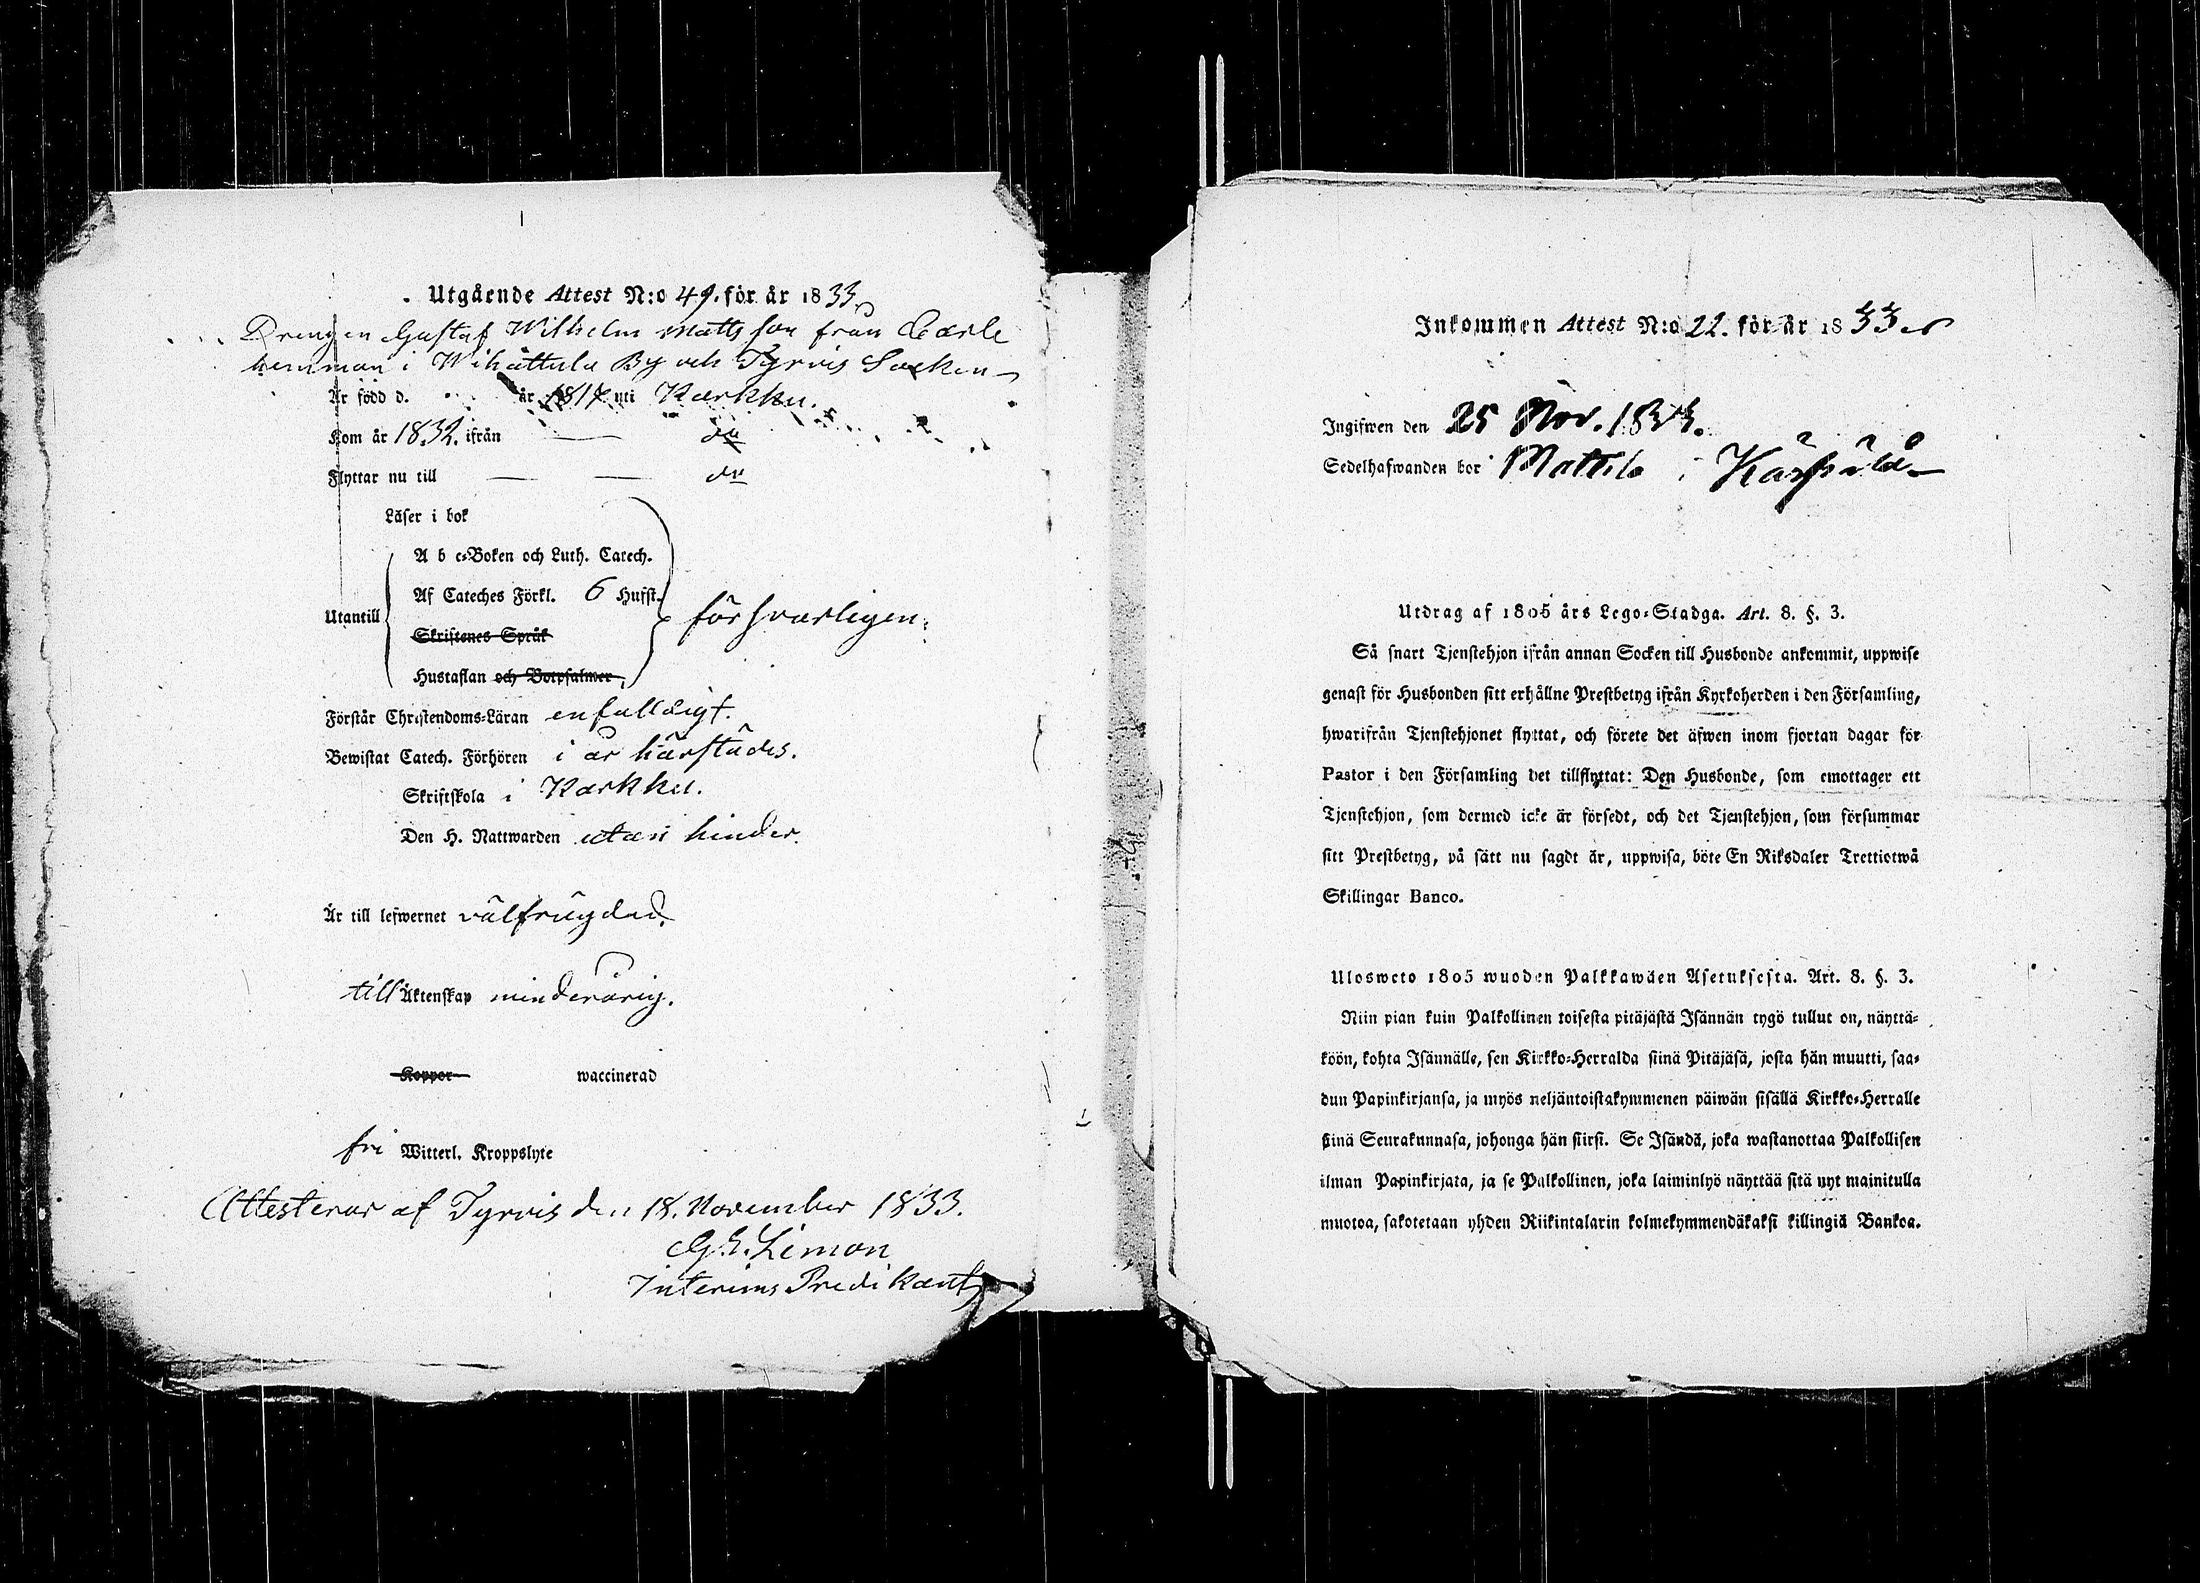 Utgående Attest N:o 49. för år 1833.
Drengen Gustaf Wilhelm Matts son från Earle
hemman i Wihattula By och Tyrvis Socken
Är född d. år 1814 uti Karkku.
Kom år 1832. ifrån do
Flyttar nu till do
Läser i bok
A b c-Boken och Luth. Catech.
Af Cateches Förkl. 6 Hufst.
Utantill försvarligen.
Skriftenes Språk
Hustaflan och Botpsalmer,
Förstår Christendoms-Läran enfalldigt.
Bewistat Catech. Förhören i år härstädes.
Skriftskola i Karkku.
Den H. Nattwarden utan hinder.
Är till lefwernet välfrägdad.
till Äktenskap minderårig.
Koppor waccinerad
fri Witterl. Kroppslyte
Attesterar af Tyrvis den 18. November 1833.
G. E. Limon
Interims Predikant
Inkommen Attest N:o 22. för år 1833
Ingifwen den 25 Nov. 1833.
Sedelhafwanden bor Mattila i
Utdrag af 1805 års Lego-Stadga. Art. 8. §. 3.
Så snart Tjenstehjon ifrån annan Socken till Husbonde ankommit, uppwise
genast för Husbonden sitt erhållne Prestbetyg ifrån Kyrkoherden i den Församling,
hwarifrån Tjenstehjonet flyttat, och förete det äfwen inom fjortan dagar för
Pastor i den Församling det tillflyttat: Den Husbonde, som emottager ett
Tjenstehjon, som dermed icke är försedt, och det Tjenstehjon, som försummar
sitt Prestbetyg, på sätt nu sagdt är, uppwisa, böte En Riksdaler Trettiotwå
Skillingar Banco.
Ulosweto 1805 wuoden Palkkawäen Asetuksesta. Art. 8. §. 3.
Niin pian kuin Palkollinen toisesta pitäjästä Isännän tygö tullut on, näyttä-
köön, kohta Isännälle, sen Kirkko-Herralda siinä Pitäjäsä, josta hän muutti, saa-
dun Papinkirjansa, ja myös neljäntoistakymmenen päiwän sisällä Kirkko-Herralle
siinä Seurakunnasa, johonga hän siirsi. Se Isändä, joka wastanottaa Palkollisen
ilman Papinkirjata, ja se Palkollinen, joka laiminlyö näyttää sitä nyt mainitulla
muotoa, sakotetaan yhden Riikintalarin kolmekymmendäkaksi killingiä Bankoa.